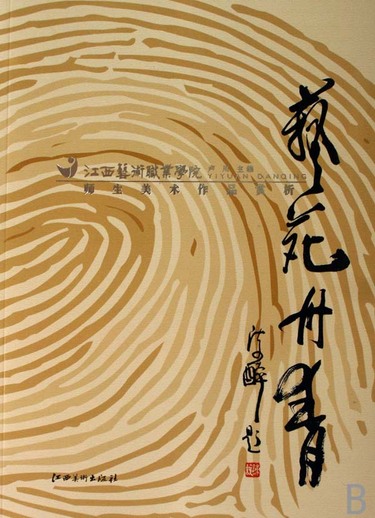 藝苑丹青
江西藝術職業學院
主编
YIYUAN DANQING
师生美术作品赏析
题
江西美術出版社
B